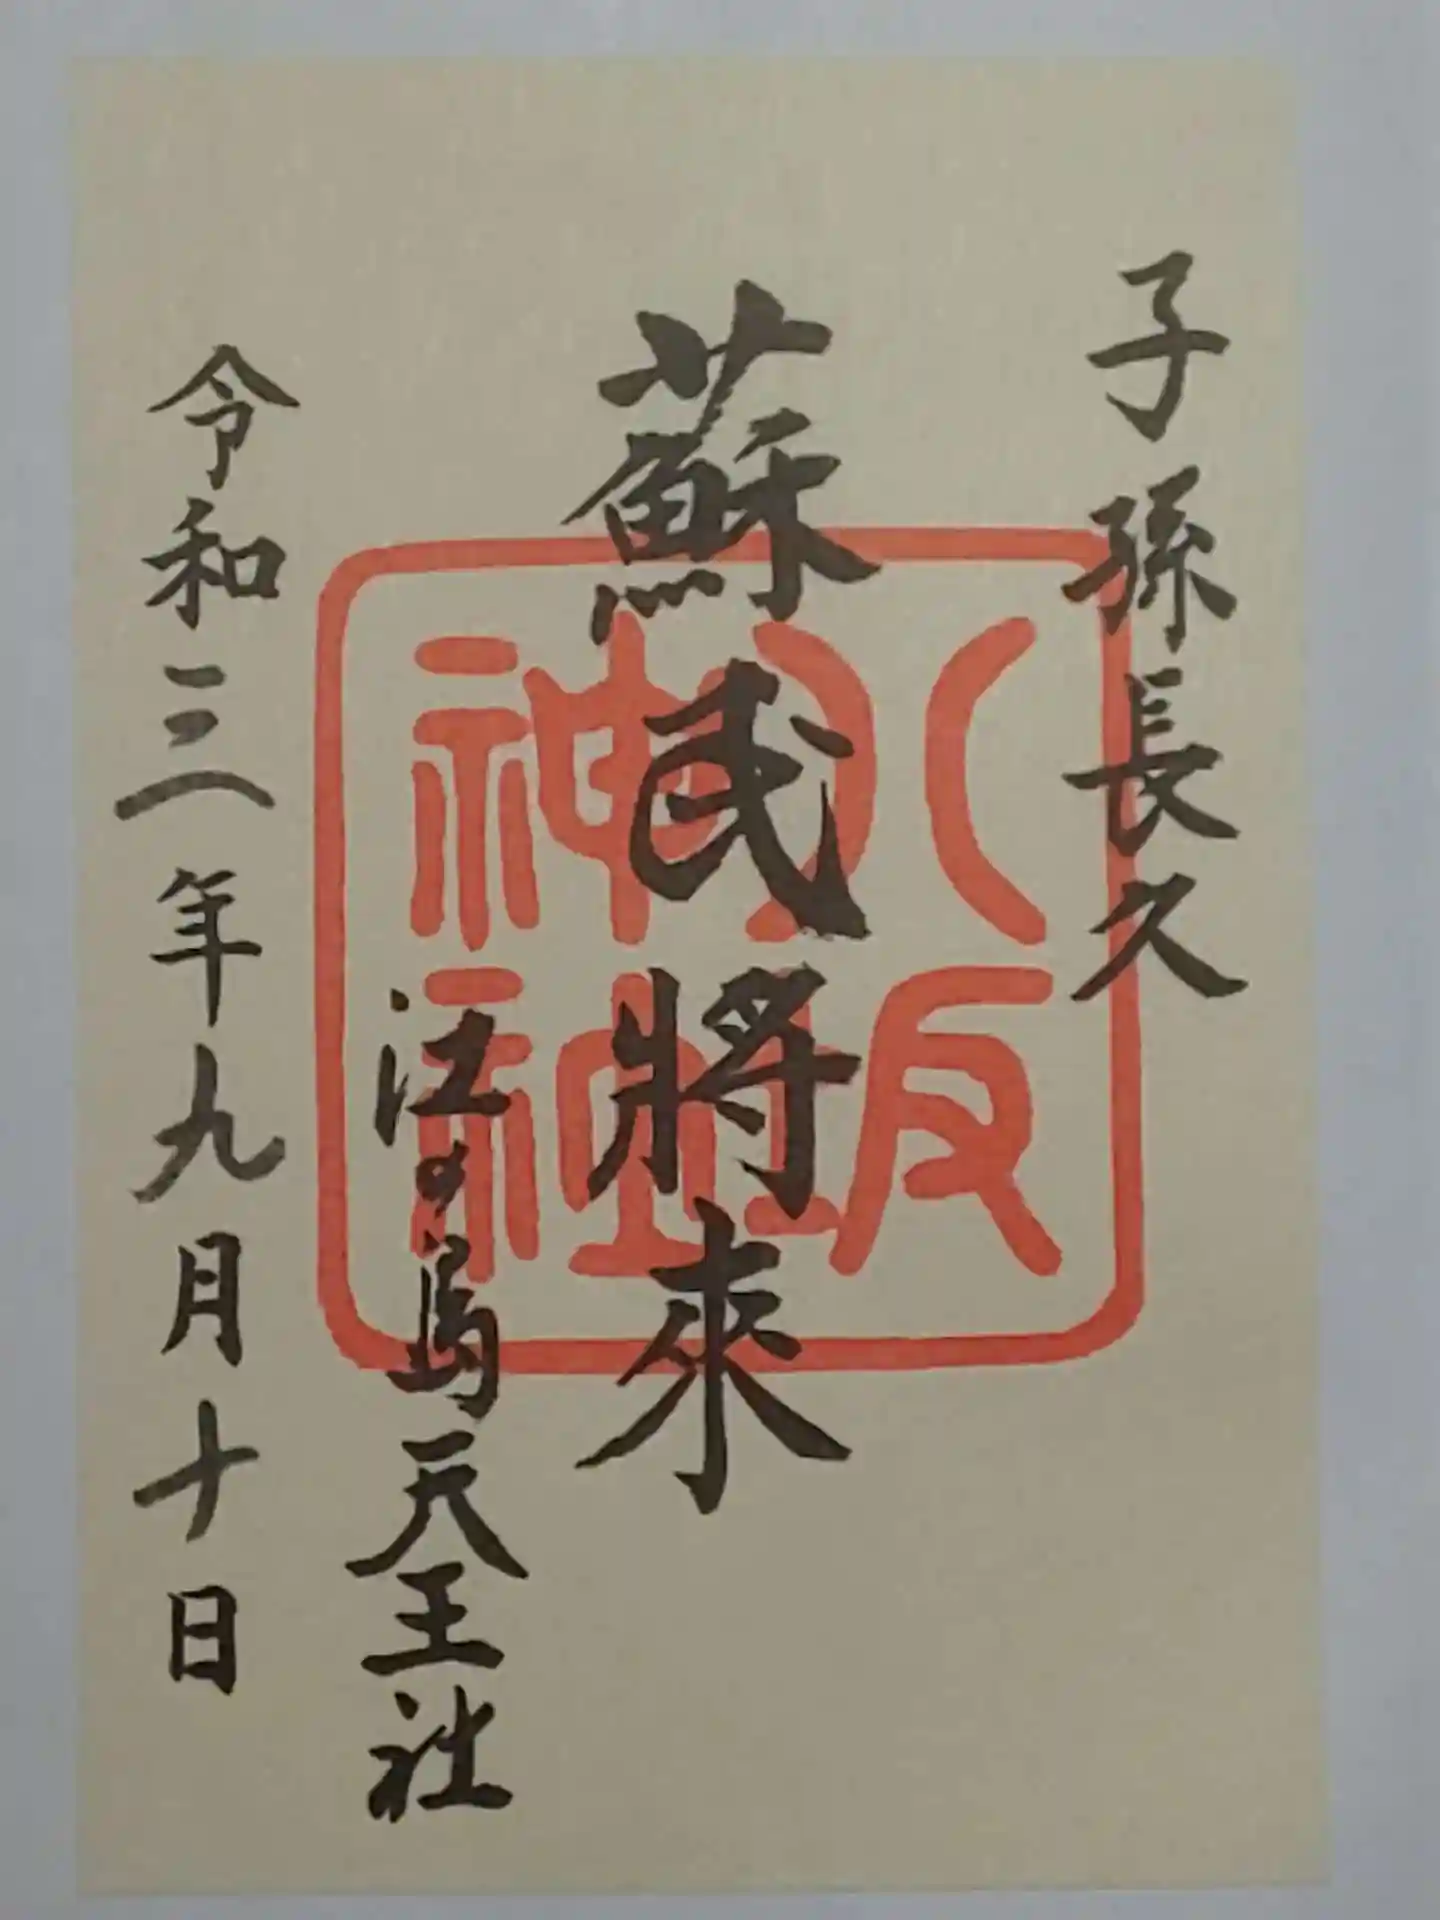 子孫長久
蘇民將來
八坂
神社
江の島天王社
令和三年九月十日